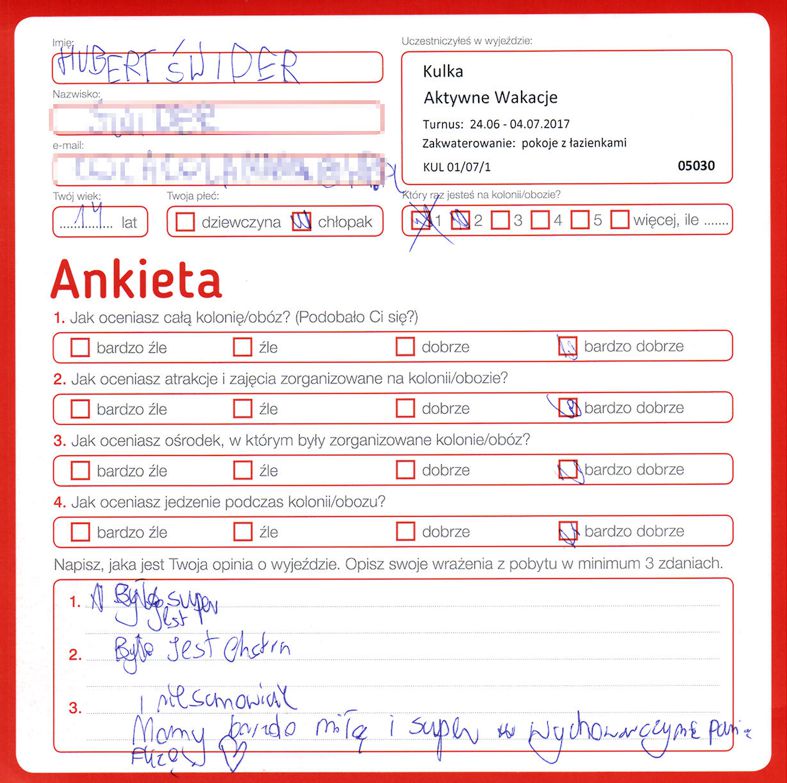 Imię:
HUBERT ŚWIDER
Uczestniczyłeś w wyjeździe:
Kulka
Aktywne Wakacje
Turnus: 24.06 - 04.07.2017
Zakwaterowanie: pokoje z łazienkami
KUL 01/07/1 05030
Nazwisko:
e-mail:
Twój wiek:
....14.... lat
Twoja płeć:
dziewczyna chłopak
Który raz jesteś na kolonii/obozie?
1 2 3 4 5 więcej, ile .......
Ankieta
1. Jak oceniasz całą kolonię/obóz? (Podobało Ci się?)
bardzo źle źle dobrze bardzo dobrze
2. Jak oceniasz atrakcje i zajęcia zorganizowane na kolonii/obozie?
bardzo źle źle dobrze bardzo dobrze
3. Jak oceniasz ośrodek, w którym były zorganizowane kolonie/obóz?
bardzo źle źle dobrze bardzo dobrze
4. Jak oceniasz jedzenie podczas kolonii/obozu?
bardzo źle źle dobrze bardzo dobrze
Napisz, jaka jest Twoja opinia o wyjeździe. Opisz swoje wrażenia z pobytu w minimum 3 zdaniach.
1. Było super
jest
2. Było jest
3. i
Mamy bardzo miłą i super panią